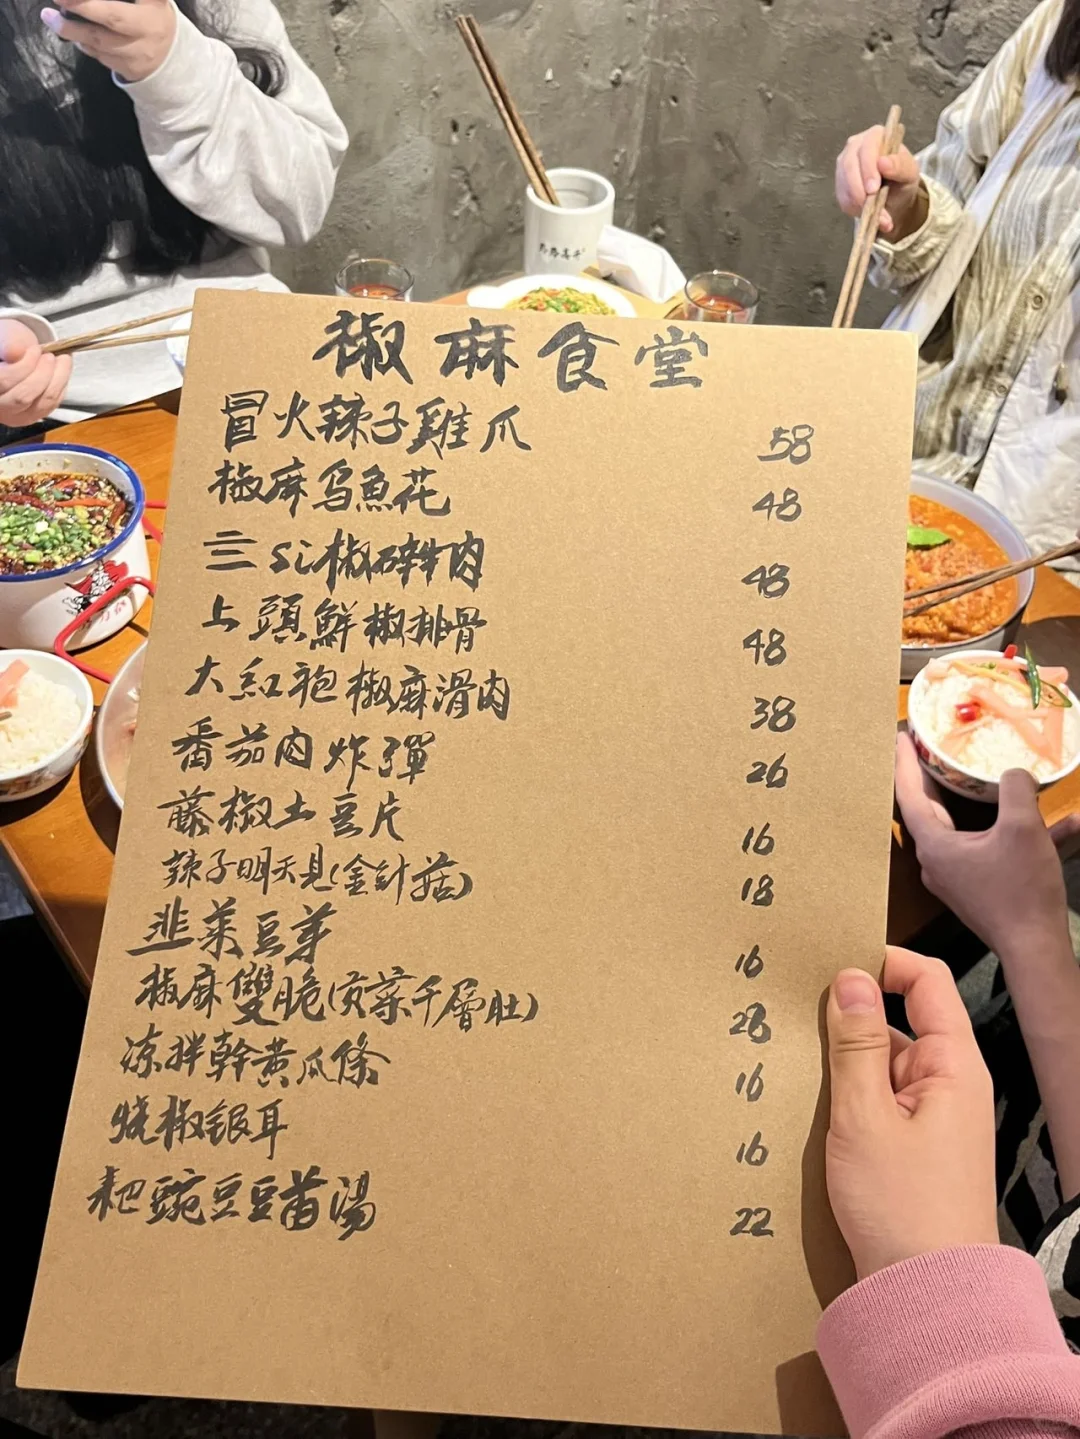 椒麻食堂
冒火辣子雞爪 58
椒麻烏魚花 48
三si椒碎牛肉 48
上頭鮮椒排骨 48
大紅袍椒麻滑肉 38
番茄肉炸彈 26
藤椒土豆片 16
辣子明天見(金針菇) 18
韭菜豆芽 16
椒麻雙脆(貢菜千層肚) 28
涼拌幹黃瓜條 16
燒椒銀耳 16
耙豌豆豆苗湯 22